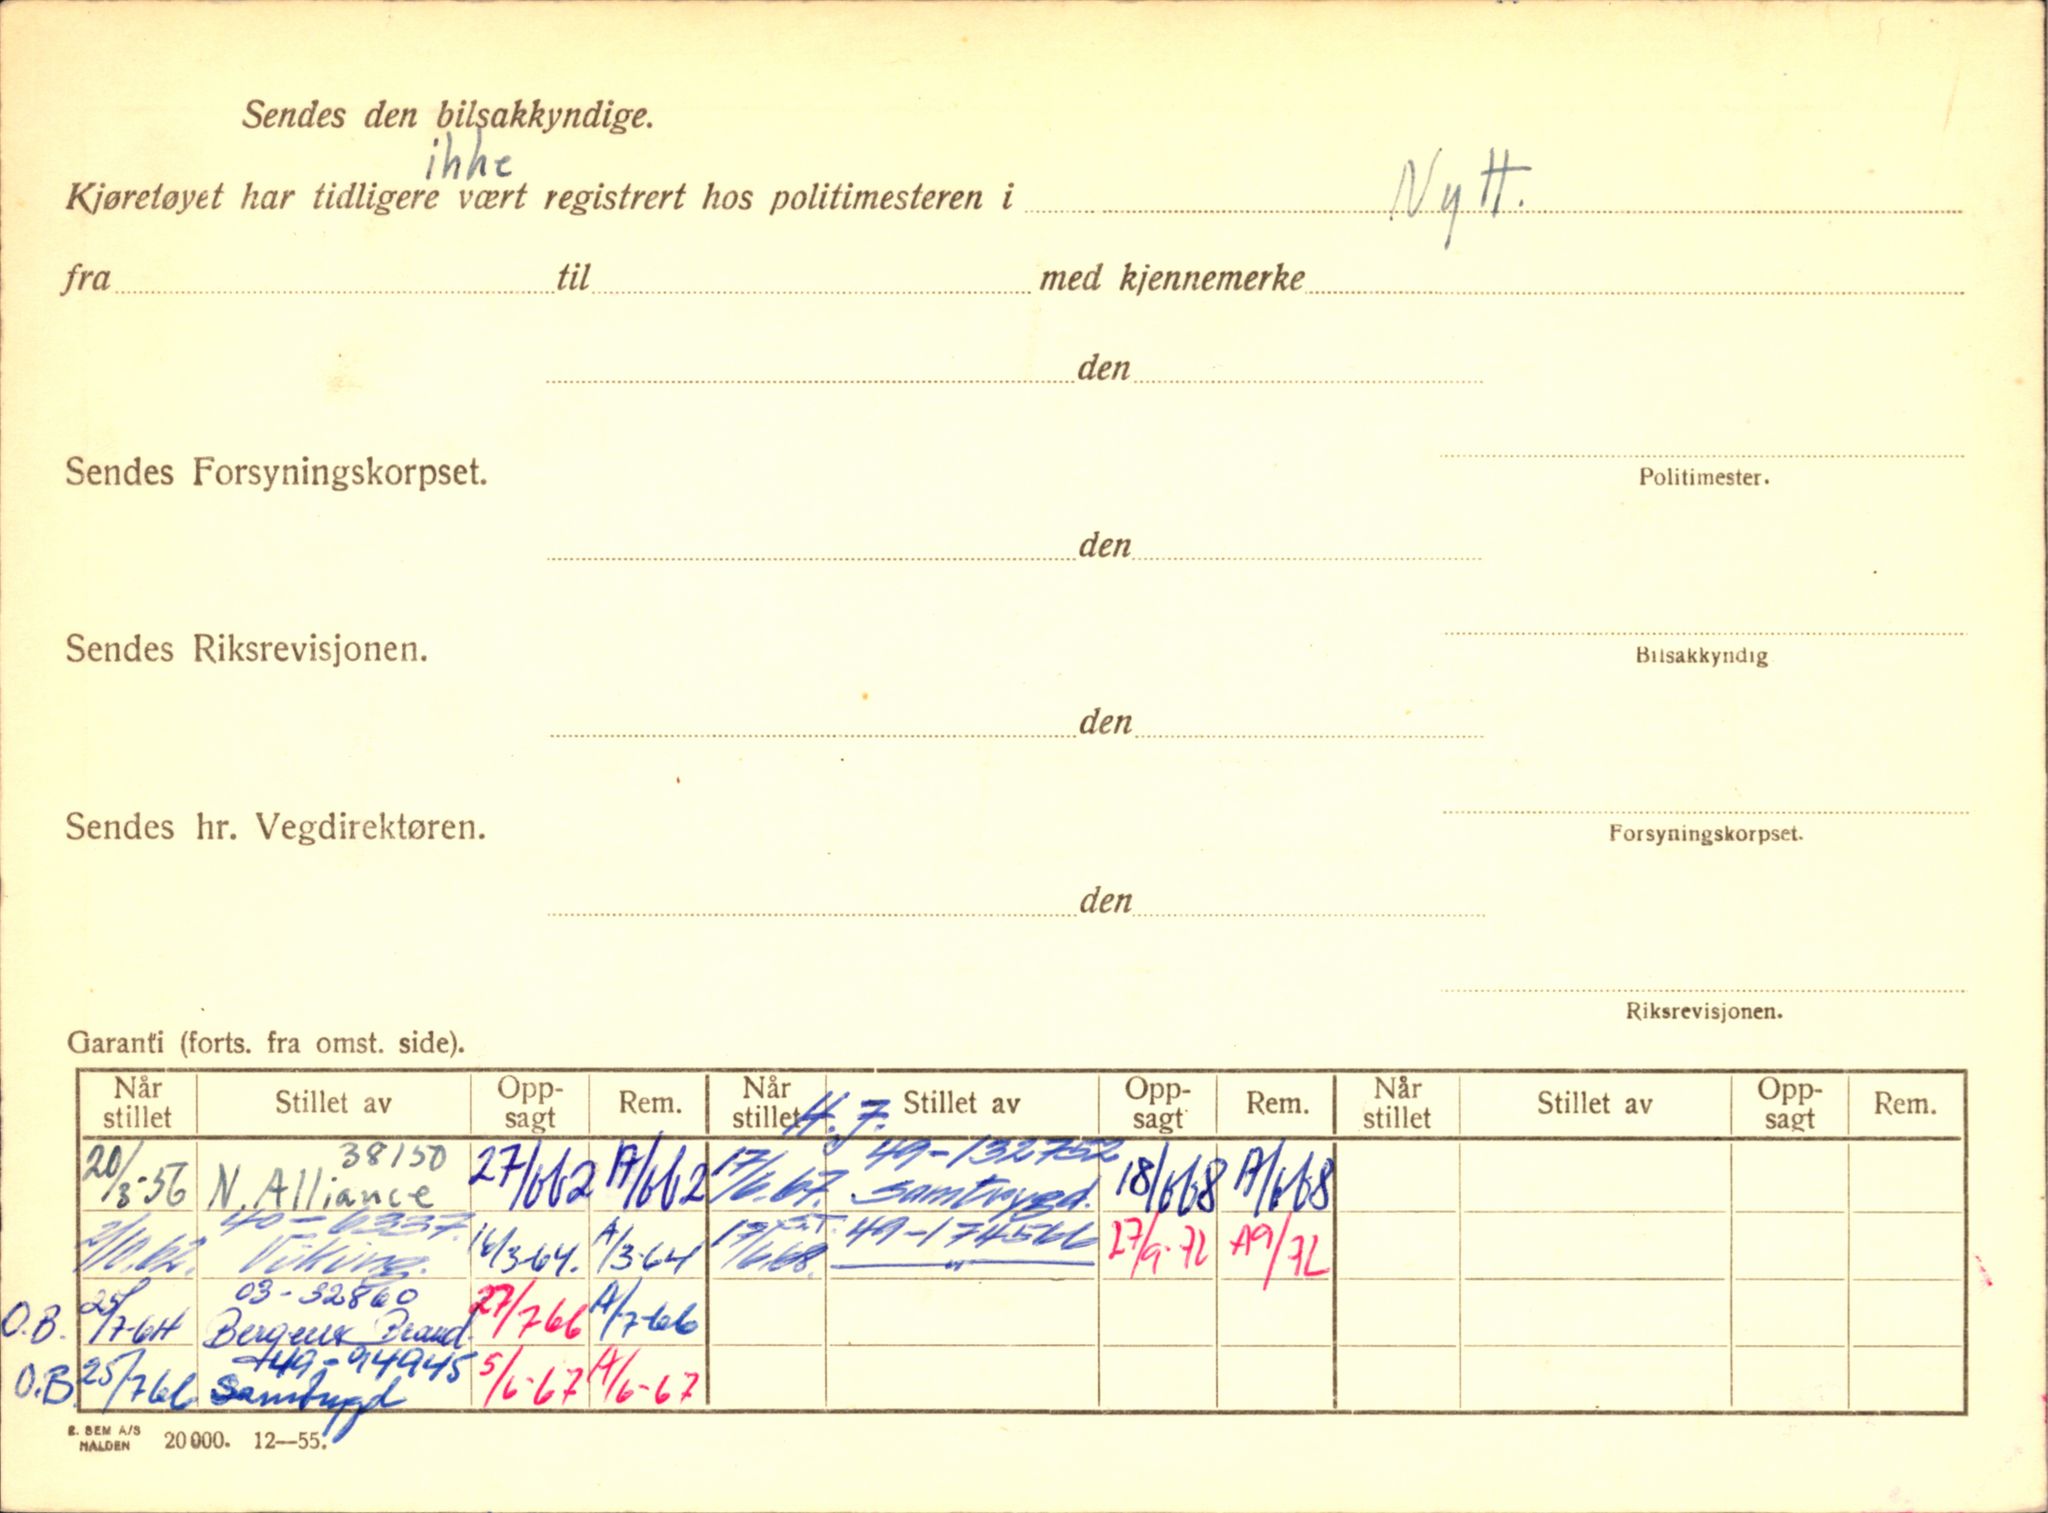 Sendes den bilsakkyndige.
ikke
Kjøretøyet har tidligere vært registrert hos politimesteren i Nytt.
fra til med kjennemerke
den
Sendes Forsyningskorpset.
Politimester.
den
Sendes Riksrevisjonen.
Bilsakkyndig
den
Sendes hr. Vegdirektøren.
Forsyningskorpset.
den
Riksrevisjonen.
Garanti (forts. fra omst. side).
Når stillet Stillet av Opp-sagt Rem. Når stillet Stillet av Opp-sagt Rem. Når stillet Stillet av Opp-sagt Rem.
H. J.
38150 49-132752
20/3-56 N. Alliance 27/662 A/662 17/6.67. Samtrygd. 18/668 A/668
40-6337.
2/11.62. Viking. 16/3-64. A/3-64 17/6.68. 49-174566 27/9-72 A9/72
03-32860
O.B. 25/7-64 Bergens Brand. 27/766 A/7-66
49-94945
O.B. 25/766 Samtrygd 5/6-67 A/6-67
E. SEM A/S
HALDEN 20000. 12—55.